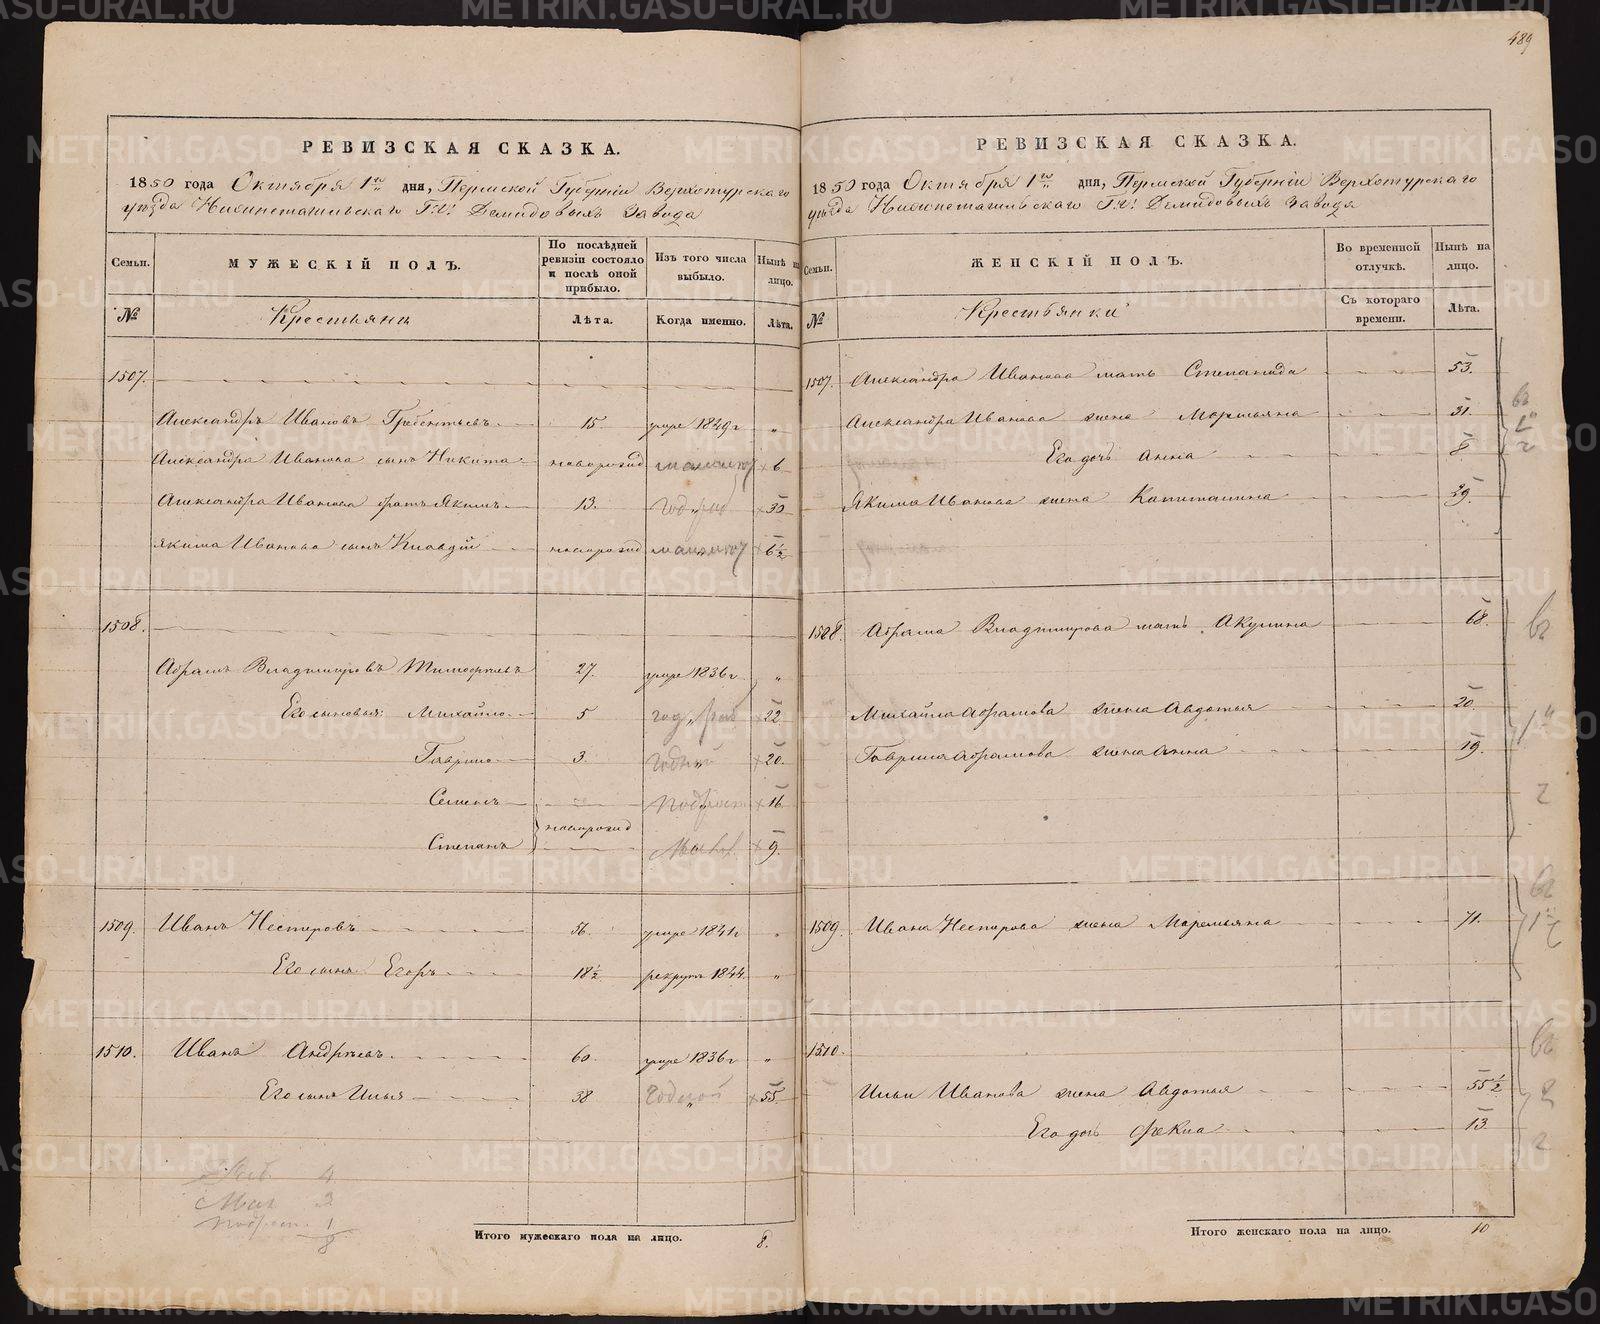 489
РЕВИЗСКАЯ СКАЗКА.
1850 года Октября 1го дня, Пермской Губерніи Верхотурскаго
уѣзда Нижнетагильскаго Г.г. Демидовыхъ Завода
Семьи.
МУЖЕСКІЙ ПОЛЪ.
По послѣдней ревизіи состояло и послѣ оной прибыло.
Изъ того числа выбыло.
Нынѣ на лицо.
№
Крестьяне
Лѣта.
Когда именно.
Лѣта.
1507.
Александръ Ивановъ Гребентьевъ 15. умре 1849 г „
Александра Иванова сынъ Никита новорожд 6
Александра Иванова братъ Якимъ 13. 30
Якима Иванова сынъ Клавдій новорожд 6 ½
1508.
Абрамъ Владимировъ Тимофѣевъ 27. умре 1836 г „
Его сыновья: Михайло 5 22
Гаврило 3. годный 20.
Семенъ 16
новорожд
Степанъ 9.
1509. Иванъ Нестеровъ 56. умре 1841 г „
Его сынъ Егоръ 18 ½ рекрутъ 1844. „
1510. Иванъ Андрѣевъ 60. умре 1836 г „
Его сынъ Илья 38 Годной 55.
Раб. 4
Мал. 3
Подрост. 1
8
Итого мужескаго пола на лицо. 8.
РЕВИЗСКАЯ СКАЗКА.
1850 года Октября 1го дня, Пермской Губерніи Верхотурскаго
уѣзда Нижнетагильскаго Г.г. Демидовыхъ Завода
Семьи.
ЖЕНСКІЙ ПОЛЪ.
Во временной отлучкѣ.
Нынѣ на лицо.
№
Крестьянки
Съ котораго времени.
Лѣта.
1507. Александра Иванова мать Степанида 53.
Александра Иванова жена Маремьяна 31.
Его дочь Анна 8
Якима Иванова жена Капиталина 29.
1508. Абрама Владимирова мать Акулина 68.
Михайла Абрамова жена Авдотья 20
Гаврила Абрамова жена Анна 19.
1509. Ивана Нестерова жена Маремьяна 71.
1510.
Ильи Иванова жена Авдотья 55 ½
Его дочь Фекла 13
Итого женскаго пола на лицо. 10
METRIKI.GASO-URAL.RU